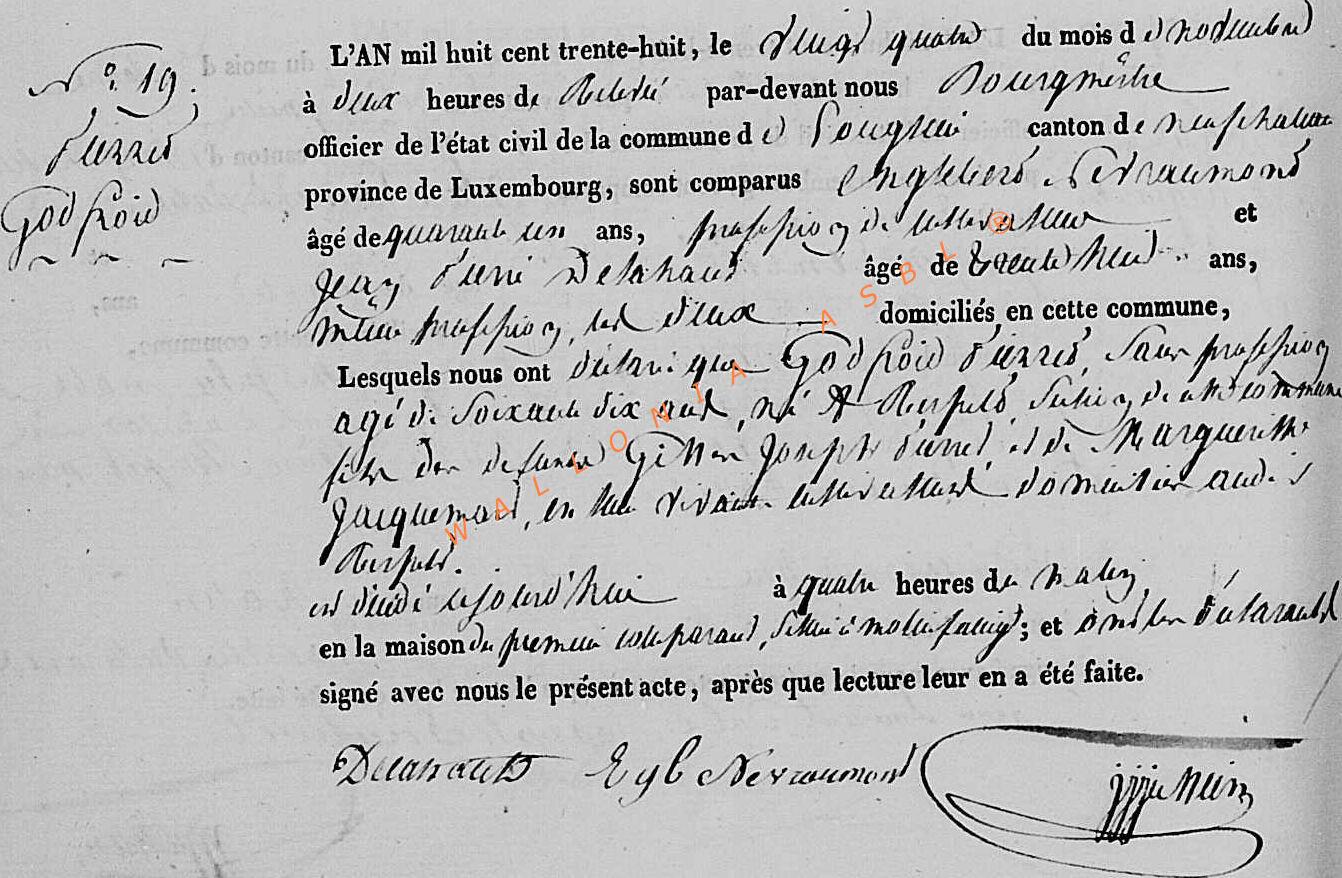 N° 19.
Pierret
Godfroid
L'AN mil huit cent trente-huit, le vingt quatre du mois de novembre
à deux heures de Relevé par-devant nous Bourgmêstre
officier de l'état civil de la commune de canton de neufchateau
province de Luxembourg, sont comparus Englebert Nevraumont
âgé de quarante un ans, profession de cultivateur et
Jean Pierre Delahaut âgé de trente huit ans,
même profession, les deux domiciliés en cette commune,
Lesquels nous ont déclaré que Godfroid Pierret, sans profession
agé de soixante dix ans, né à Rossart, section de cette commune
fils des defunts Joseph Pierret et de Marguerithe
Jacquemart, en leur vivant cultivateurs domiciliés audit
est décédé cejourd'hui à quatre heures du matin
en la maison du premier comparant, située à ; et ont les déclarants
signé avec nous le présent acte, après que lecture leur en a été faite.
Delahaut Eglb Nevraumont
WALLONIA ASBL ®